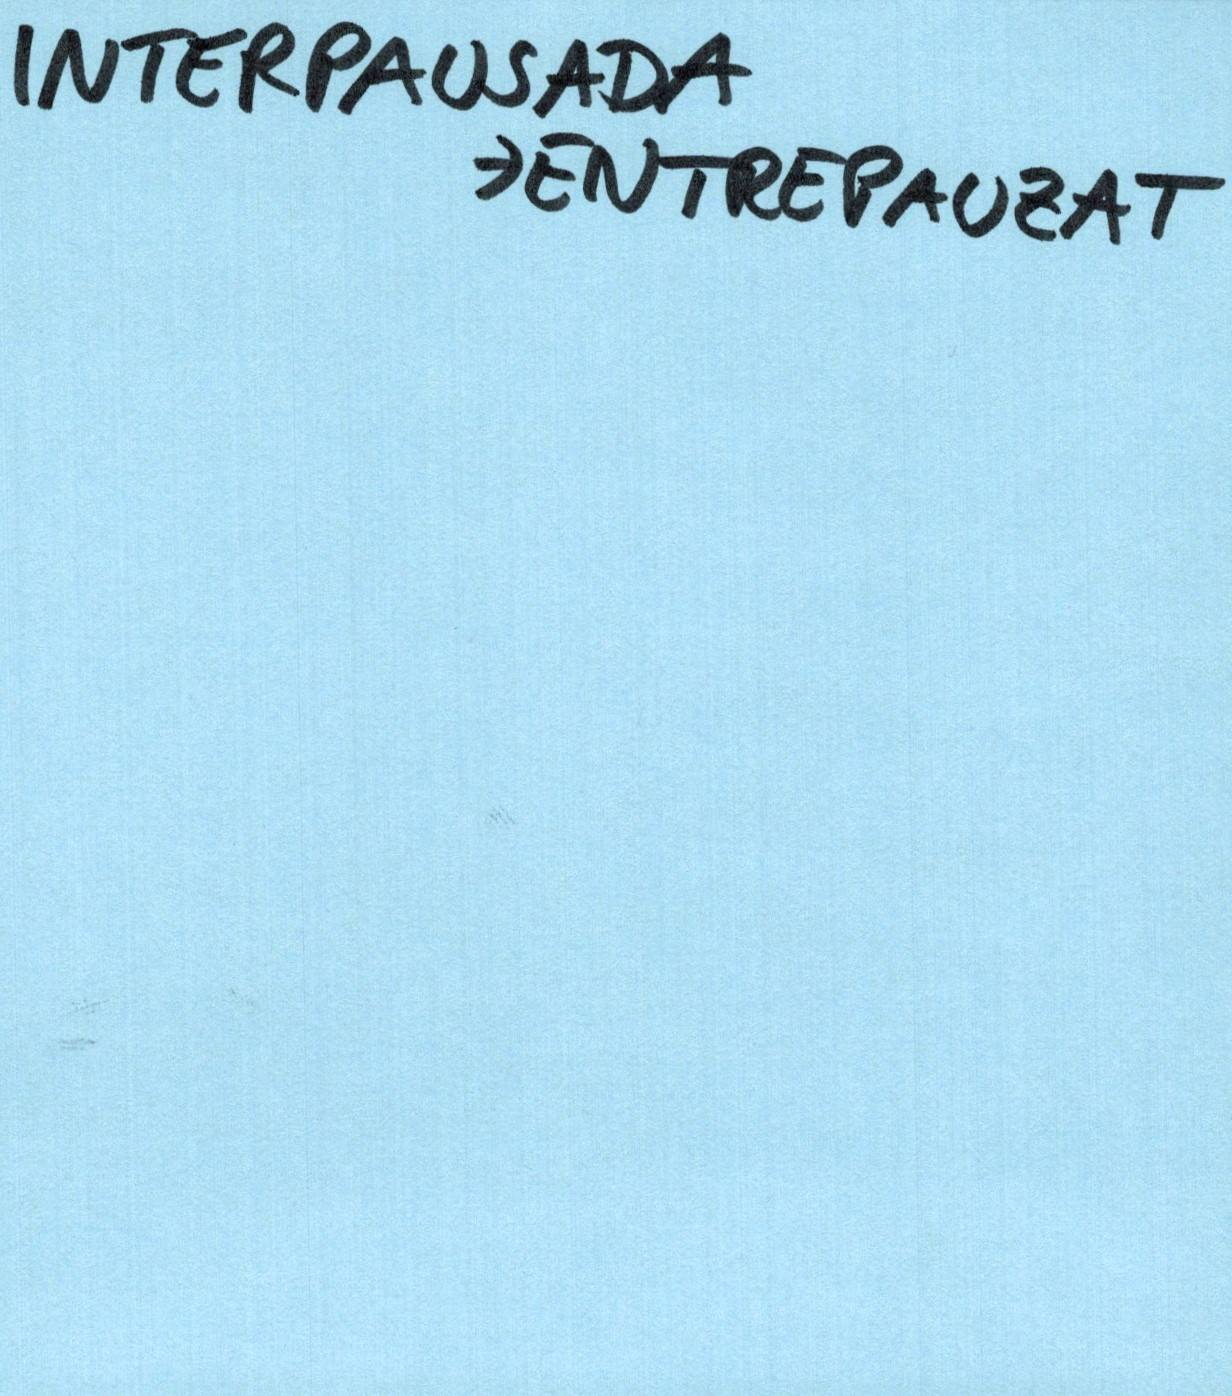 INTERPAUSADA
→ENTREPAUZAT